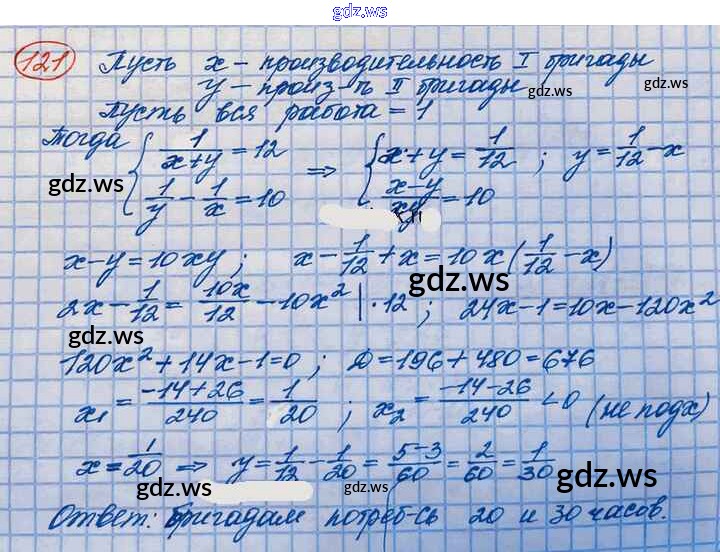 gdz.ws
121 Пусть x – производительность I бригады
y – произ-ть II бригады gdz.ws gdz.ws
Пусть вся работа = 1
Тогда { 1/(x+y) = 12 ⇒ { x + y = 1/12 ; y = 1/12 - x
gdz.ws 1/y - 1/x = 10 (x-y)/xy = 10 gdz.ws
x - y = 10xy ; x - 1/12 + x = 10x(1/12 - x)
gdz.ws
2x - 1/12 = 10x/12 - 10x² | · 12 ; 24x - 1 = 10x - 120x²
gdz.ws
120x² + 14x - 1 = 0 ; D = 196 + 480 = 676
x₁ = (-14+26)/240 = 1/20 ; x₂ = (-14-26)/240 < 0 (не подх)
x = 1/20 ⇒ y = 1/12 - 1/20 = (5-3)/60 = 2/60 = 1/30
gdz.ws gdz.ws gdz.ws
Ответ: бригадам потреб-сь 20 и 30 часов.
gdz.ws